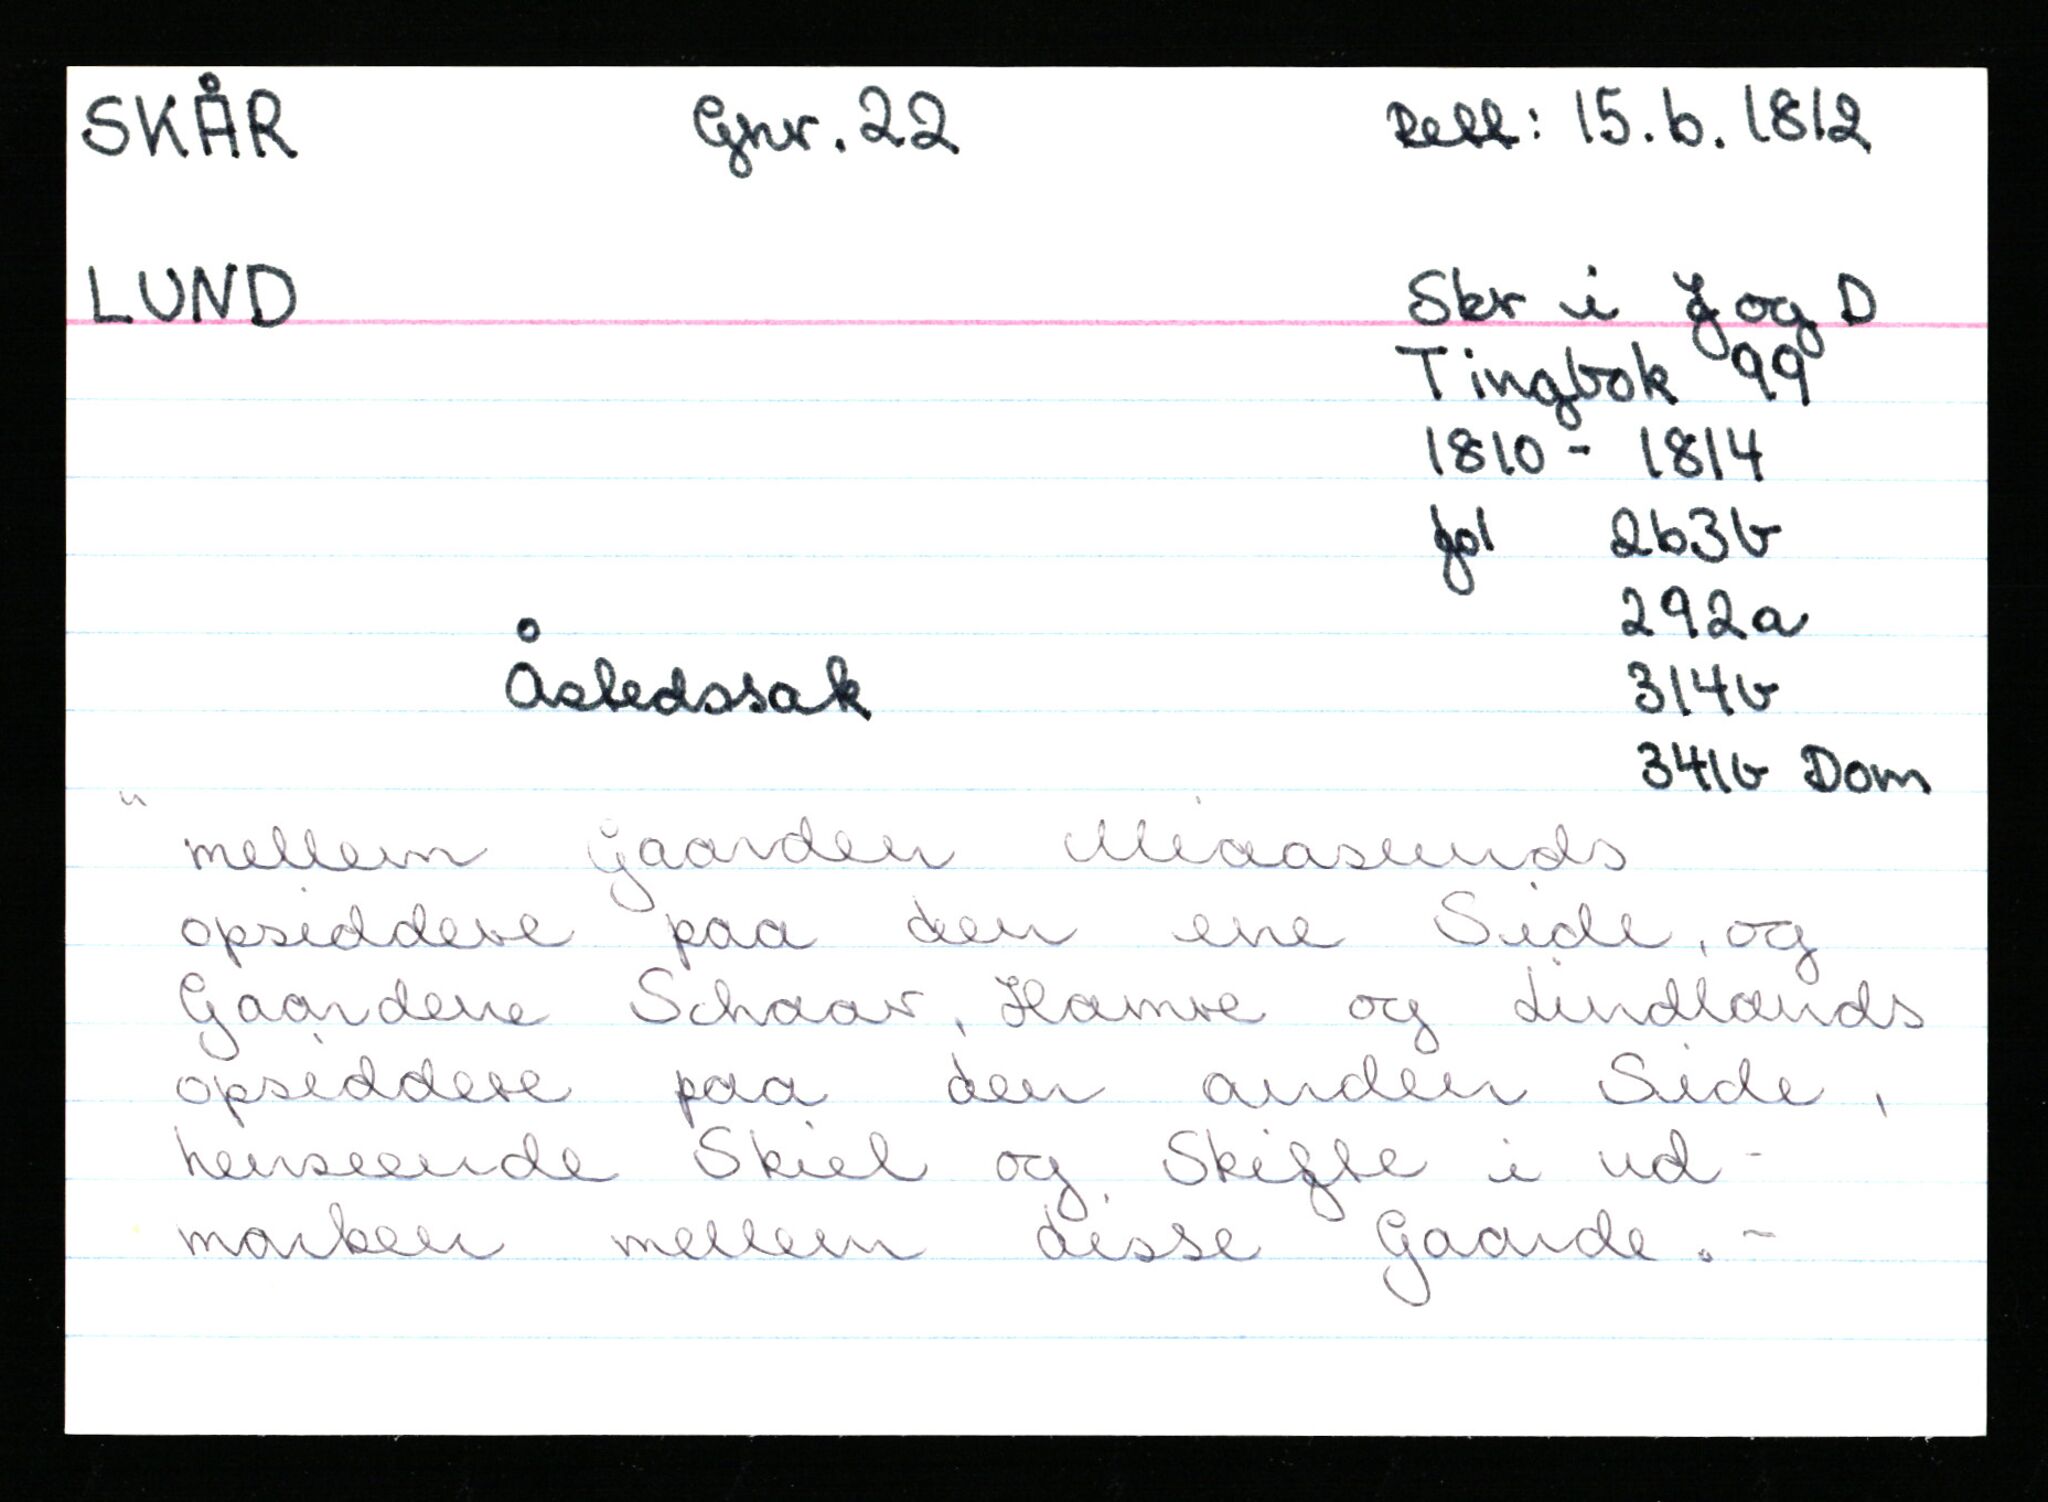 SKÅR Gnr. 22 Rett: 15.6.1812
LUND Skr i J og D
Tingbok 99
1810 - 1814
fol 263b
292a
Åstedssak 314b
341b Dom
" mellem Gaarden Moasunds
opsiddere paa den ene Side, og
Gaardene Schaar, Hamre og Lindlands
opsiddere paa den anden Side,
henseende Skiel og Skifte i ud-
marken mellem disse Gaarde. -